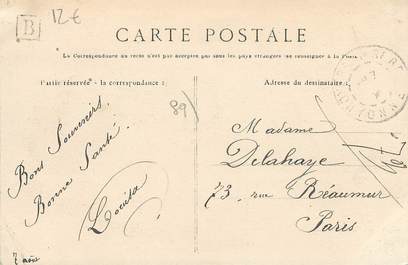 12€
B
CARTE POSTALE
La Correspondance au recto n'est pas acceptée par tous les pays étrangers se renseigner à la Poste.
Partie réservée à la correspondance :
Adresse du destinataire :
89
Bons Souvenirs.
Bonne Santé.
Louisa
7 août
Madame
Delahaye
73, rue Réaumur
Paris